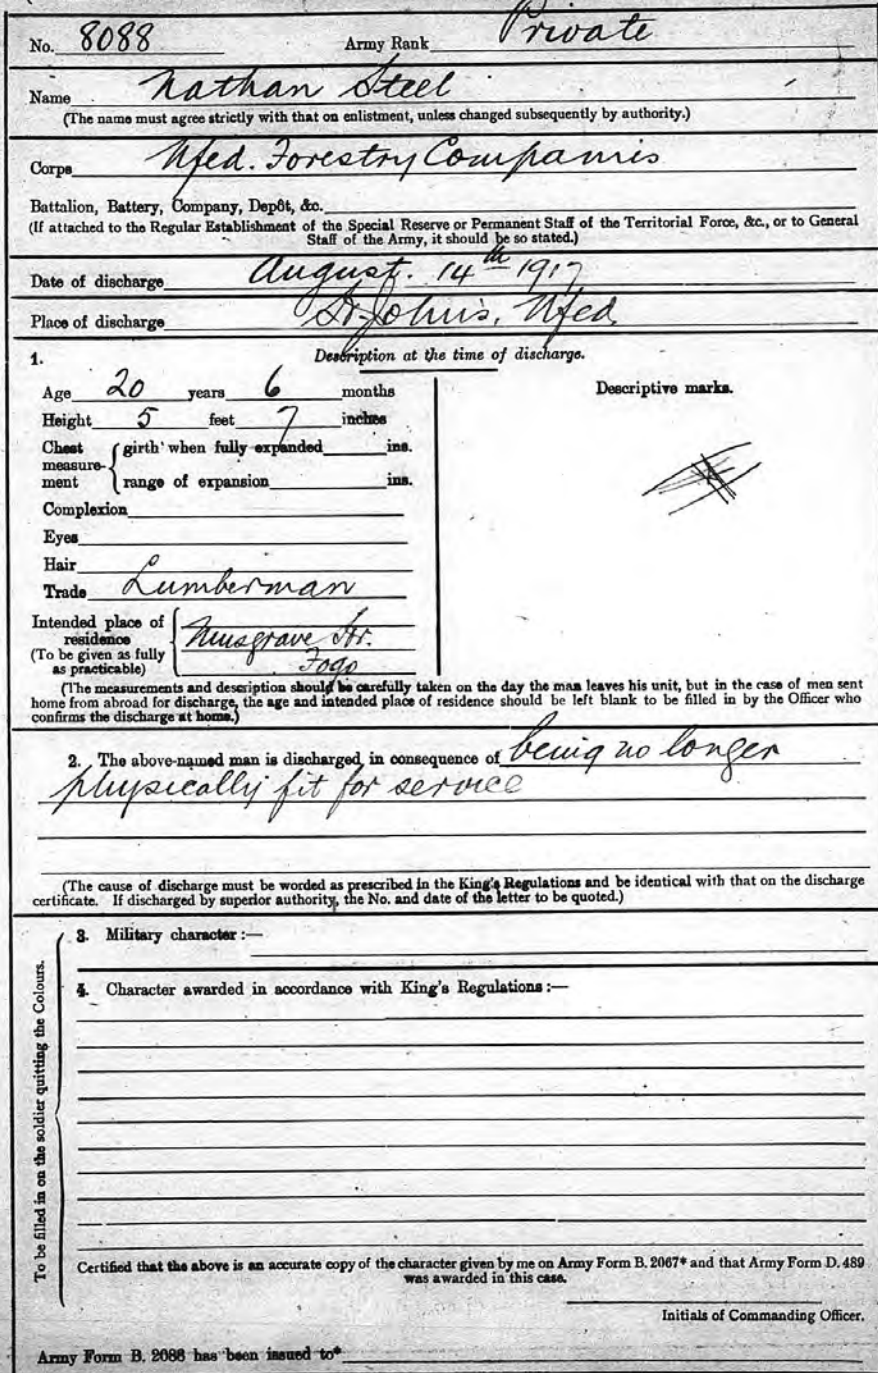 No. 8088 Army Rank Private
Name Nathan Steel
(The name must agree strictly with that on enlistment, unless changed subsequently by authority.)
Corps Nfed. Forestry Companies
Battalion, Battery, Company, Depôt, &c.
(If attached to the Regular Establishment of the Special Reserve or Permanent Staff of the Territorial Force, &c., or to General
Staff of the Army, it should be so stated.)
Date of discharge August. 14th 1917
Place of discharge St. John's, Nfed.
1. Description at the time of discharge.
Age 20 years 6 months
Descriptive marks.
Height 5 feet 7 inches
Chest measure-ment girth when fully expanded ins.
range of expansion ins.
Complexion
Eyes
Hair
Trade Lumberman
Intended place of residence (To be given as fully as practicable) Musgrave Hr.
Fogo
(The measurements and description should be carefully taken on the day the man leaves his unit, but in the case of men sent
home from abroad for discharge, the age and intended place of residence should be left blank to be filled in by the Officer who
confirms the discharge at home.)
2. The above-named man is discharged in consequence of being no longer
physically fit for service
(The cause of discharge must be worded as prescribed in the King's Regulations and be identical with that on the discharge
certificate. If discharged by superior authority, the No. and date of the letter to be quoted.)
To be filled in on the soldier quitting the Colours.
3. Military character :—
4. Character awarded in accordance with King's Regulations :—
Certified that the above is an accurate copy of the character given by me on Army Form B. 2067* and that Army Form D. 489
was awarded in this case.
Initials of Commanding Officer.
Army Form B. 2088 has been issued to*